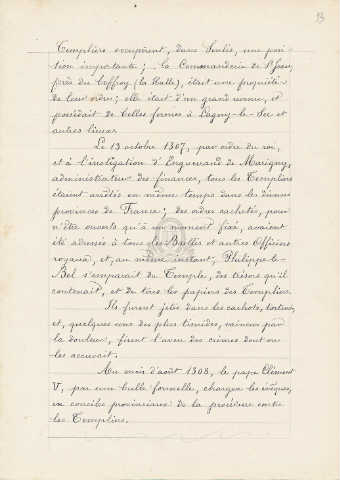 13
Templiers occupèrent, dans Senlis, une posi-
tion importante ; la Commanderie de St Jean,
près du Beffroy (la Halle), était une propriété
de leur ordre ; elle était d'un grand revenu, et
possédait de belles fermes à Lagny-le-Sec et
autres lieux.
Le 13 octobre 1307, par ordre du roi,
et à l'instigation d'Enguerrand de Marigny,
administrateur des finances, tous les Templiers
étaient arrêtés en même temps dans les diverses
provinces de France ; des ordres cachetés, pour
n'être ouverts qu'à un moment fixé, avaient
été adressés à tous les Baillis et autres Officiers
royaux, et, au même instant, Philippe-le-
Bel s'emparait du Temple, des trésors qu'il
contenait, et de tous les papiers des Templiers.
Ils furent jetés dans les cachots, torturés,
et, quelques-uns des plus timides, vaincus par
la douleur, firent l'aveu des crimes dont on
les accusait.
Au mois d'août 1308, le pape Clément
V, par une bulle formelle, chargea les évêques,
en conciles provinciaux de la procédure contre
les Templiers.